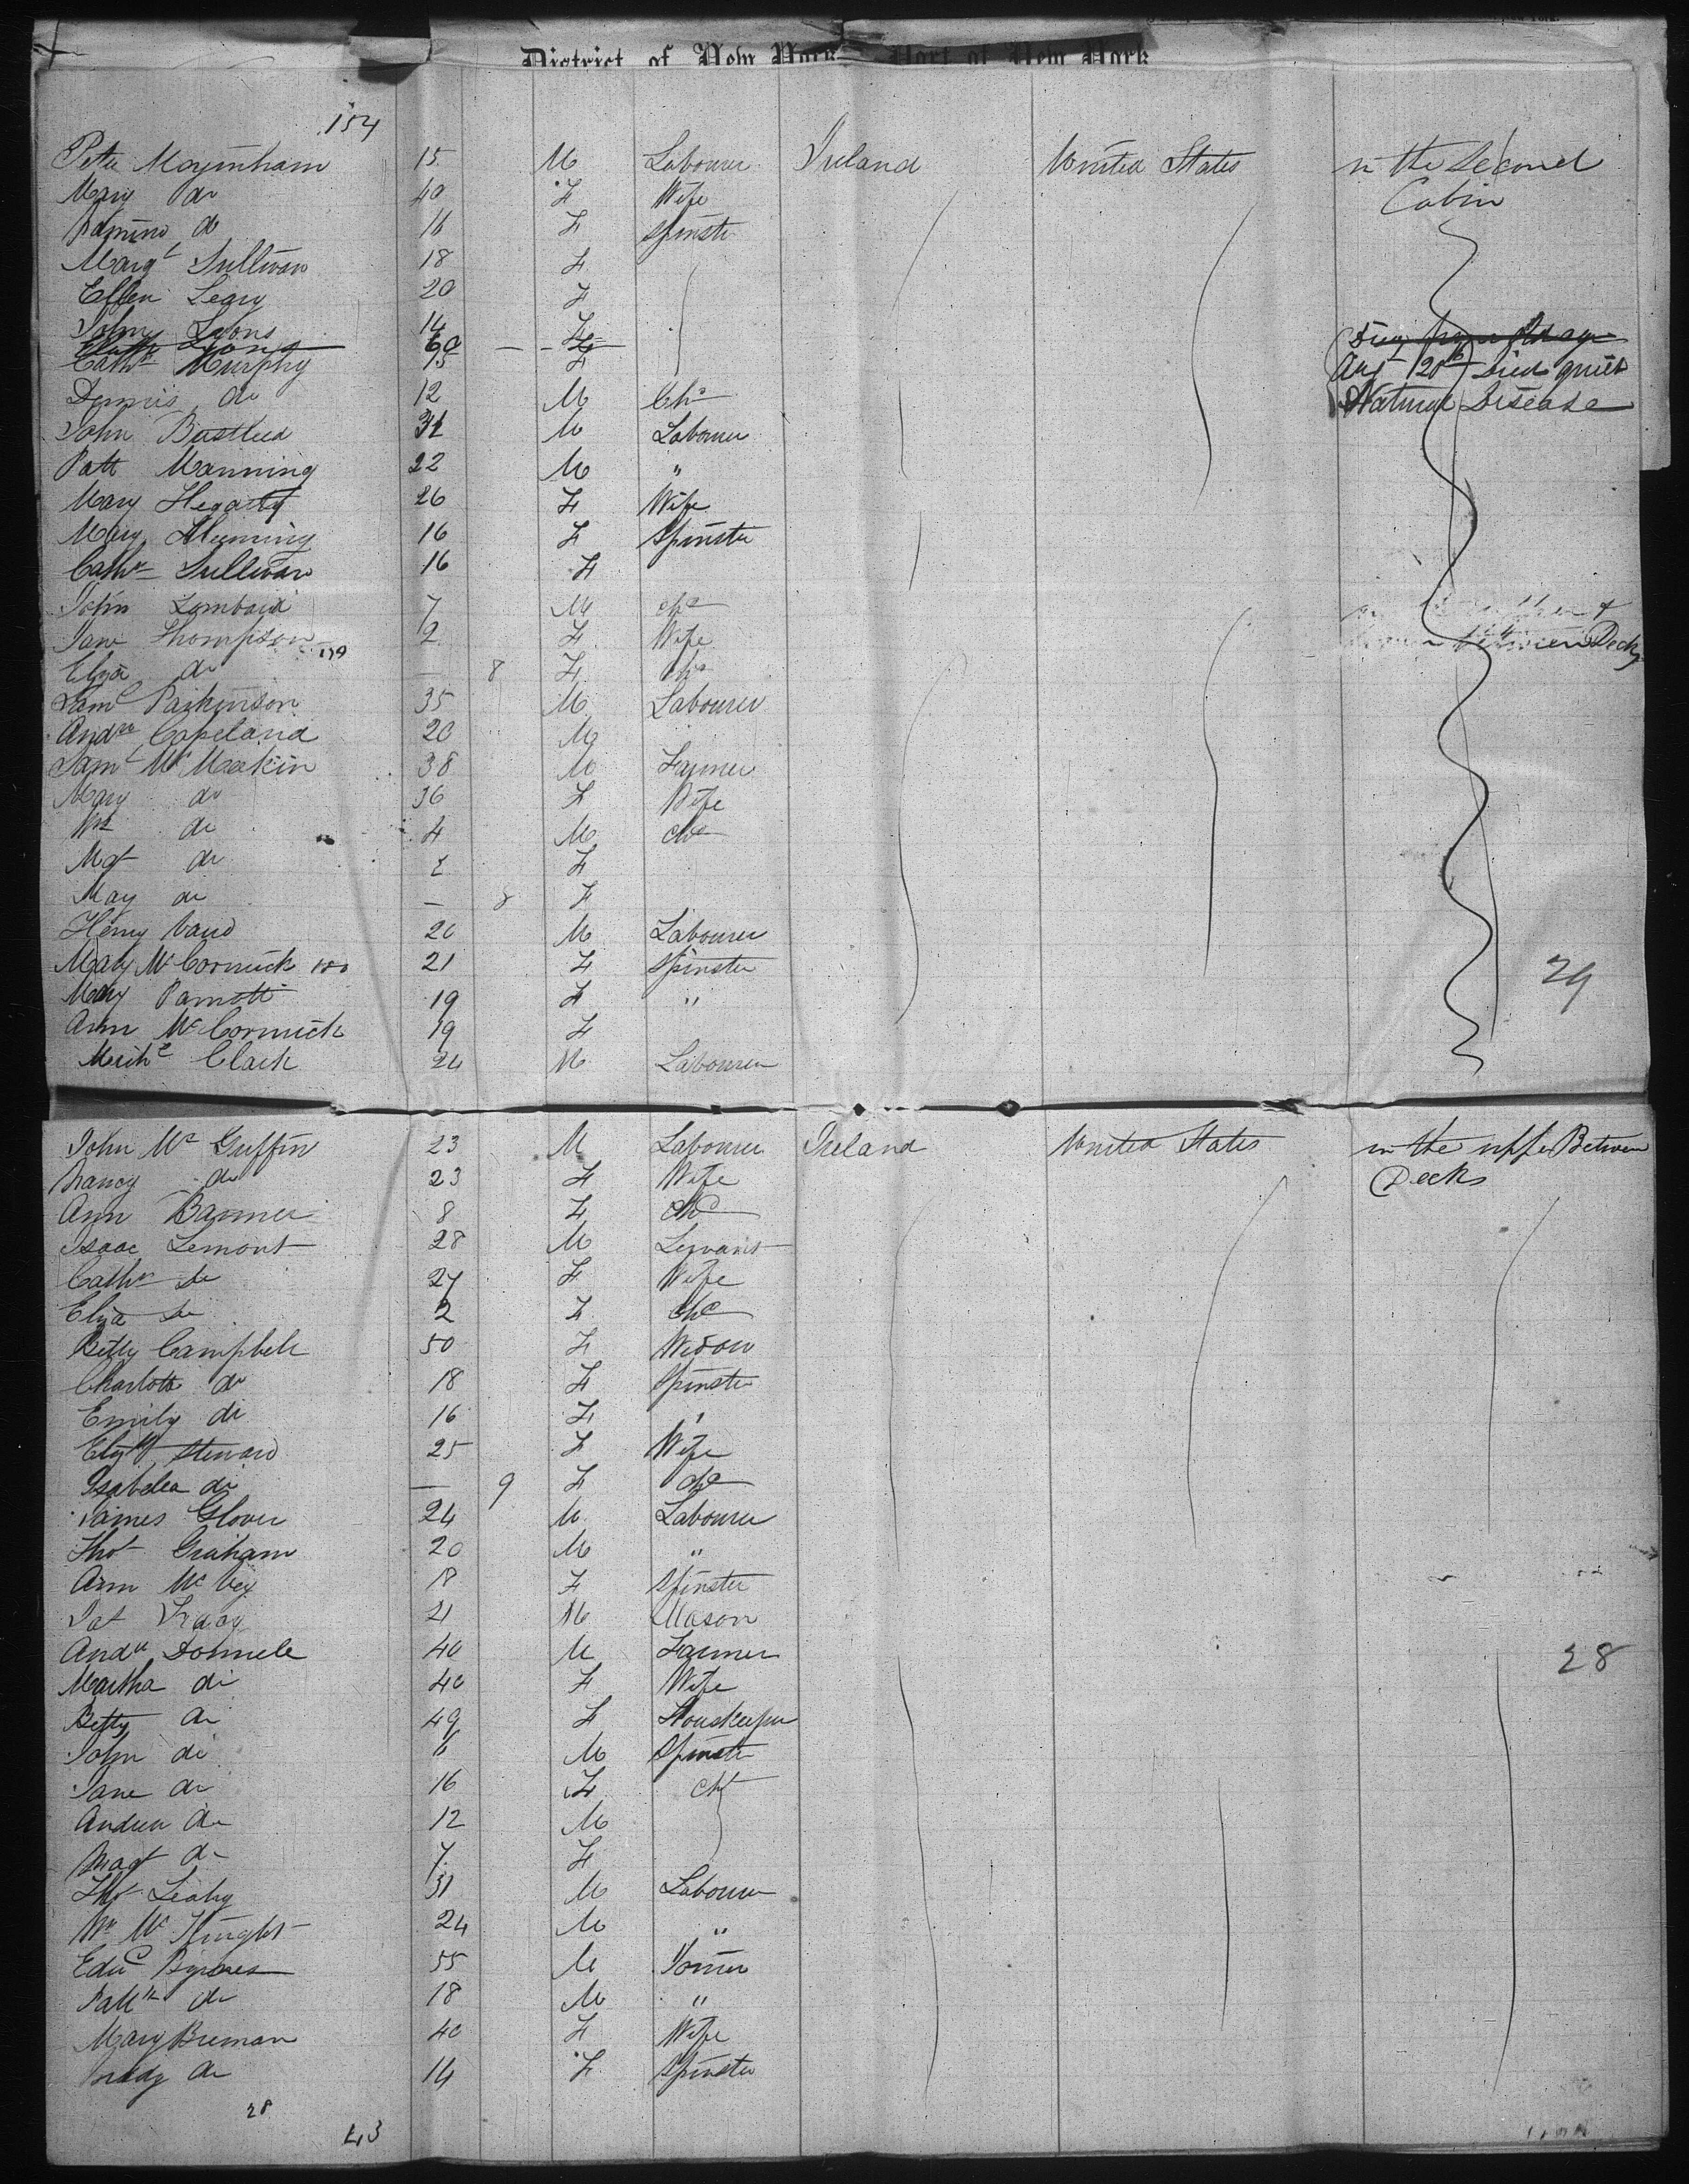 District of New York Port of New York
154
Peter Moyinham 15 M Labourer Ireland United States in the Second
Mary do 40 F Wife Cabin
do 16 F Spinster
Margt Sullivan 18 F
Ellen Leary 20 F
Lyons 14 F
Lyons 60 F
Cathn Murphy 15 F Augt 20th died
Dennis do 12 M Chd Natural Disease
John Busteed 31 M Labourer
Patt Manning 22 M "
Mary Hegarty 26 F Wife
Mary Fleming 16 F Spinster
Cathn Sullivan 16 F
John Lombard 7 M chd
Jane Thompson 2 F Wife between Decks
Eliza do — 8 F chd
Saml Parkinson 35 M Labourer
Andw Copeland 20 M
Saml McMeekin 38 M Farmer
Mary do 36 F Wife
Wm do 4 M chd
Mgt do 2 F
May do — 8 F
Henry 20 M Labourer
Mary McCormick 180 21 F Spinster 29
Mary Parrott 19 F "
Ann McCormick 19 F
Michl Clark 24 M Labourer
John McGuffin 23 M Labourer Ireland United States in the upper Between
Nancy do 23 F Wife Decks
Ann Banner 8 F chd
Isaac Lemont 28 M Servant
Cathn do 27 F Wife
Eliza do 2 F chd
Betty Campbell 50 F Widow
Charlotte do 18 F Spinster
Emily do 16 F "
Elizth Steward 25 F Wife
Isabella do — 9 F chd
James Glover 24 M Labourer
Thos Graham 20 M "
Ann McVey 18 F Spinster
Pat 21 M Mason
Andw Donnele 40 M Farmer 28
Martha do 40 F Wife
Betty do 49 F Housekeeper
John do 6 M Spinster
Jane do 16 F chd
Andrew do 12 M
Magt do 7 F
Thos Leahy 31 M Labourer
Wm McKnight 24 M "
Edwd Byrnes 55 M
Pattk do 18 M "
Mary Brennan 40 F Wife
do 14 F Spinster
28
43